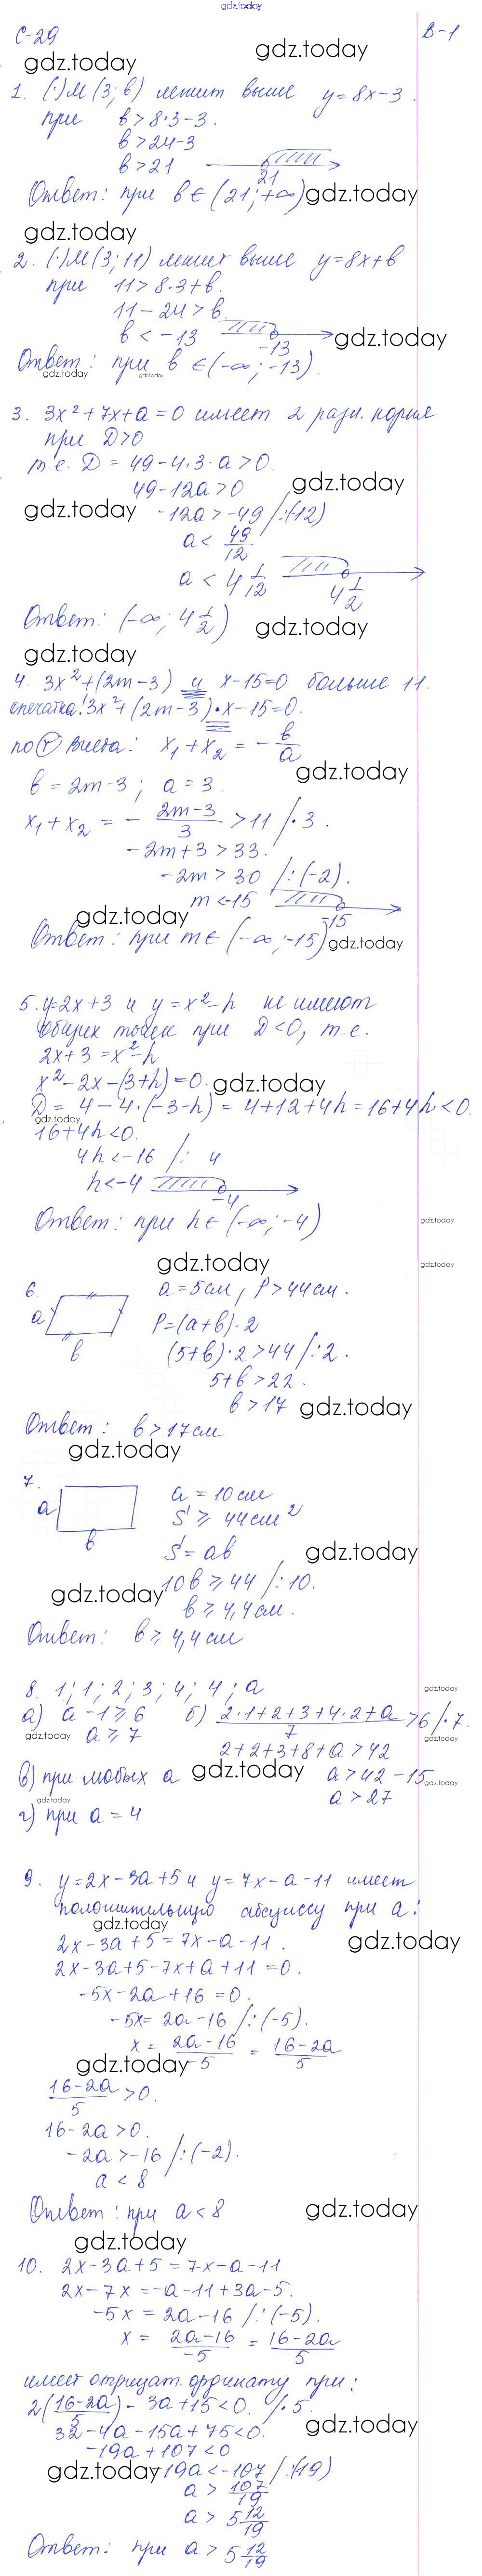 gdz.today
С-29
В-1
gdz.today
gdz.today
1. (·)М (3; b) лежит выше y = 8x - 3.
при b > 8·3 - 3.
b > 24 - 3
b > 21
21
Ответ: при b ∈ (21; +∞) gdz.today
gdz.today
2. (·)М (3; 11) лежит выше y = 8x + b
при 11 > 8·3 + b.
11 - 24 > b.
b < -13
-13
gdz.today
Ответ: при b ∈ (-∞; -13).
gdz.today
gdz.today
3. 3x² + 7x + a = 0 имеет 2 разл. корня
при D > 0
т.е. D = 49 - 4·3·a > 0.
49 - 12a > 0
gdz.today
gdz.today
-12a > -49 /:(-12)
a < 49/12
a < 4 1/12
4 1/2
Ответ: (-∞; 4 1/2)
gdz.today
gdz.today
4. 3x² + (2m - 3) и x - 15 = 0 больше 11.
опечатка! 3x² + (2m - 3)·x - 15 = 0.
по т Виета: x₁ + x₂ = - b/a
gdz.today
b = 2m - 3; a = 3.
x₁ + x₂ = - (2m-3)/3 > 11 /·3.
-2m + 3 > 33.
-2m > 30 /:(-2).
m < -15
-15
gdz.today
Ответ: при m ∈ (-∞; -15) gdz.today
5. y = 2x + 3 и y = x² - h не имеют
общих точек при D < 0, т.е.
2x + 3 = x² - h
x² - 2x - (3 + h) = 0. gdz.today
D = 4 - 4·(-3 - h) = 4 + 12 + 4h = 16 + 4h < 0.
gdz.today
16 + 4h < 0.
4h < -16 /: 4
h < -4
-4
Ответ: при h ∈ (-∞; -4)
gdz.today
gdz.today
gdz.today
6. a = 5 см, P > 44 см.
a
b
P = (a + b)·2
(5 + b)·2 > 44 /:2.
5 + b > 22.
b > 17 gdz.today
Ответ: b > 17 см
gdz.today
7.
a
b
a = 10 см
S ≥ 44 см²
S = ab
gdz.today
gdz.today
10b ≥ 44 /:10.
b ≥ 4,4 см.
Ответ: b ≥ 4,4 см
8. 1; 1; 2; 3; 4; 4; a
gdz.today
а) a - 1 ≥ 6 б) (2·1+2+3+4·2+a)/7 > 6 /·7.
gdz.today
a ≥ 7
gdz.today
2 + 2 + 3 + 8 + a > 42
в) при любых a gdz.today a > 42 - 15
gdz.today
gdz.today
a > 27
г) при a = 4
9. y = 2x - 3a + 5 и y = 7x - a - 11 имеет
положительную абсциссу при a:
gdz.today
2x - 3a + 5 = 7x - a - 11.
gdz.today
2x - 3a + 5 - 7x + a + 11 = 0.
-5x - 2a + 16 = 0.
-5x = 2a - 16 /:(-5).
x = (2a-16)/-5 = (16-2a)/5
gdz.today
(16-2a)/5 > 0.
16 - 2a > 0.
-2a > -16 /:(-2).
a < 8
Ответ: при a < 8
gdz.today
gdz.today
10. 2x - 3a + 5 = 7x - a - 11
2x - 7x = -a - 11 + 3a - 5.
-5x = 2a - 16 /:(-5).
x = (2a-16)/-5 = (16-2a)/5
имеет отрицат. ординату при:
2((16-2a)/5) - 3a + 15 < 0. /·5.
32 - 4a - 15a + 75 < 0.
gdz.today
-19a + 107 < 0
gdz.today
-19a < -107 /:(-19)
a > 107/19
a > 5 12/19
Ответ: при a > 5 12/19